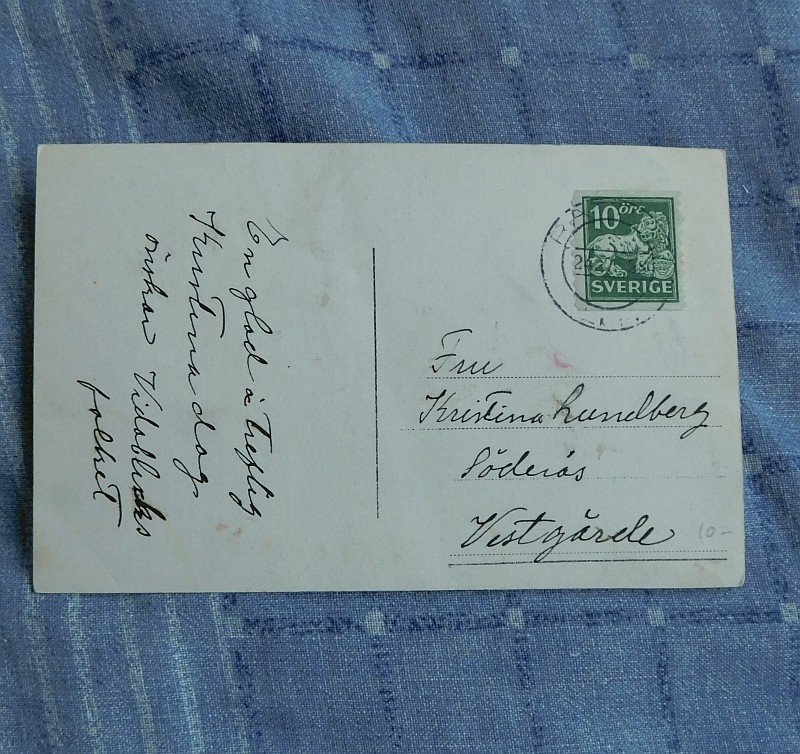 En glad å treflig
Kristina dag
önskar Vidablicks
folket
10 öre
SVERIGE
Fru
Kristina Lundberg
Söderås
Vestgärde
10-